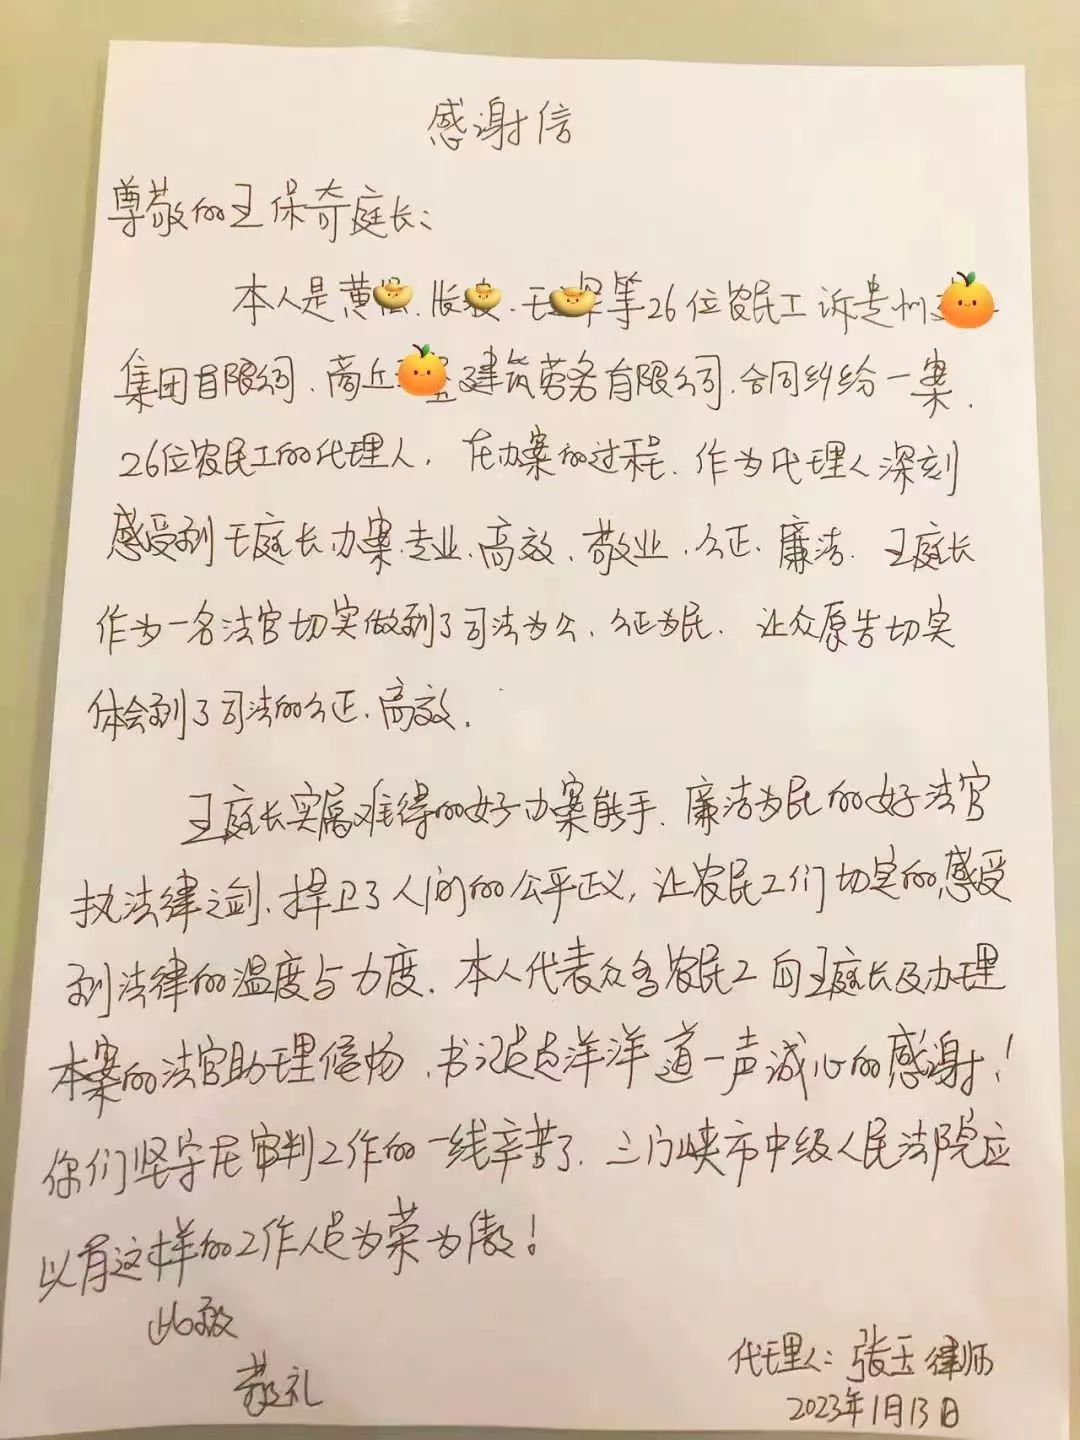 感谢信
尊敬的王保奇庭长:
本人是黄 、张 、王 等26位农民工诉贵州
集团有限公司、商丘 建筑劳务有限公司、合同纠纷一案、
26位农民工的代理人、在办案的过程、作为代理人深刻
感受到王庭长办案、专业、高效、敬业、公正、廉洁、王庭长
作为一名法官切实做到了司法为公、公正为民、让众原告切实
体会到了司法的公正、高效.
王庭长实属难得的好办案能手、廉洁为民的好法官
执法律之剑、捍卫了人间的公平正义,让农民工们切实的感受
到法律的温度与力度、本人代表众多农民工向王庭长及办理
本案的法官助理 、书记员 洋洋道一声诚心的感谢!
你们坚守在审判工作的一线辛苦了、三门峡市中级人民法院应
以有这样的工作人员为荣为傲!
此致
敬礼
代理人:张玉律师
2023年1月13日